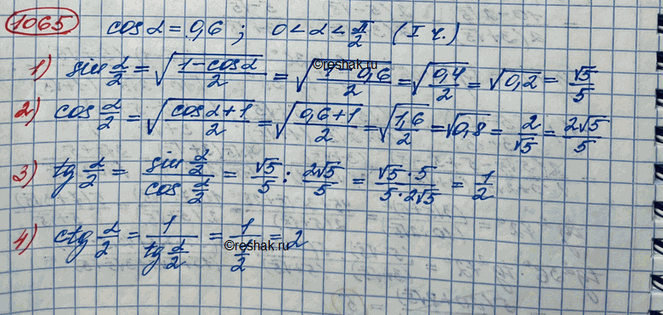 1065 cos α = 0,6 ; 0 < α < π/2 (I ч.)
1) sin α/2 = √((1-cosα)/2) = √((1-0,6)/2) = √(0,4/2) = √0,2 = √5/5
2) cos α/2 = √((cosα+1)/2) = √((0,6+1)/2) = √(1,6/2) = √0,8 = 2/√5 = 2√5/5
3) tg α/2 = (sin α/2)/(cos α/2) = √5/5 : 2√5/5 = (√5·5)/(5·2√5) = 1/2
4) ctg α/2 = 1/(tg α/2) = 1/(1/2) = 2
©reshak.ru
©reshak.ru